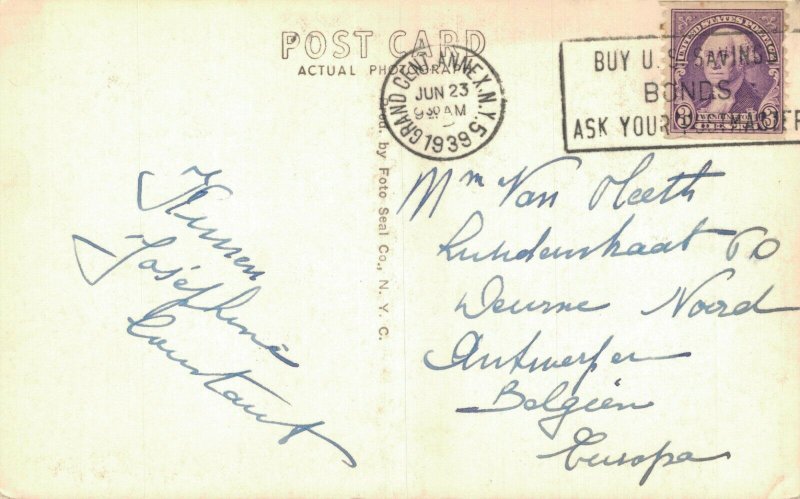 POST CARD
ACTUAL PHOTOGRAPH
GRAND CENT. ANNEX, N.Y.
JUN 23
9 30 AM
1939
5
BUY U.S. SAVINGS
BONDS
ASK YOUR POSTMASTER
UNITED STATES POSTAGE
3 3
Prod. by Foto Seal Co., N. Y. C.
Kussen
Joséphine
Constant
Mm Van Meeth
Lundenstraat 60
Deurne Noord
Antwerpen
Belgïen
Europa